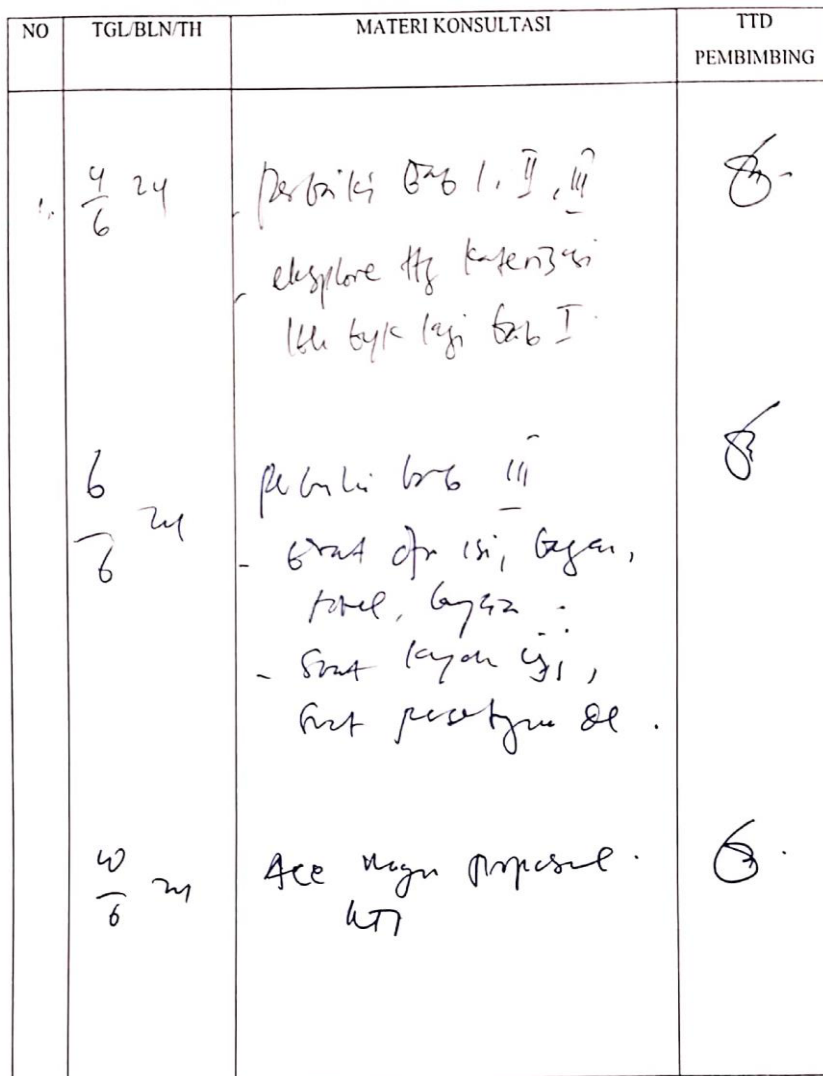 NO TGL/BLN/TH MATERI KONSULTASI TTD
PEMBIMBING
1. 4/6 24 - Perbaiki bab I, II, III
- eksplore ttg katerisasi
lbh byk lagi bab I.
6/6 24 Perbaiki bab III
- buat dfr isi, bagan,
tabel,
- buat
buat
10/6 24 Acc maju proposal.
KTI